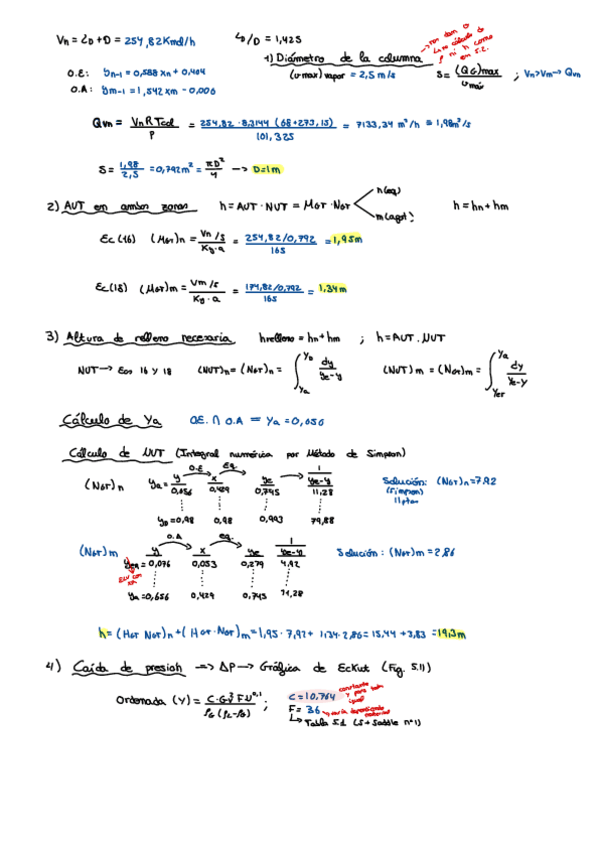 Vn = LD + D = 254,82 Kmol/h
LD/D = 1,425
1) Diámetro de la columna
(v max) vapor = 2,5 m/s
S = (QG)max / v máx ; Vn > Vm → Qvn
O.E: yn-1 = 0,588 xn + 0,404
O.A: ym-1 = 1,542 xm - 0,006
Qvn = Vn R Tcol / P = 254,82 · 8,3144 (68+273,15) / 101,325 = 7133,34 m³/h ≡ 1,98 m³/s
S = 1,98 / 2,5 = 0,792 m² = πD² / 4 → D = 1m
2) AUT en ambas zonas h = AUT · NUT = HOT · NOT n (eq) m (agot) h = hn + hm
Ec (16) (HOT)n = Vn/S / Ky·a = 254,82/0,792 / 165 = 1,95m
Ec (18) (HOT)m = Vm/S / Ky·a = 174,82/0,792 / 165 = 1,34m
3) Altura de relleno necesaria hrelleno = hn + hm ; h = AUT . NUT
NUT → Ecs 16 y 18 (NUT)n = (NOT)n = ∫ya yD dy / ye-y (NUT)m = (NOT)m = ∫yer ya dy / ye-y
Cálculo de Ya OE. ∩ O.A = Ya = 0,656
Cálculo de NUT (Integral numérica por Método de Simpson)
O.E Eq.
(NOT)n y x ye 1 / ye-y
ya = 0,656 0,429 0,745 11,28
yD = 0,98 0,98 0,993 79,88
Solución: (NOT)n = 7,92
(Simpson)
11 ptos
O.A eq.
(NOT)m y x ye 1 / ye-y
= 0,076 0,053 0,279 4,92
ya = 0,656 0,429 0,745 11,28
Solución: (NOT)m = 2,86
h = (HOT NOT)n + (HOT·NOT)m = 1,95 · 7,92 + 1,34 · 2,86 = 15,44 + 3,83 = 19,3m
4) Caída de presión => ΔP → Gráfica de Eckert (Fig. 5.11)
Ordenada (Y) = C·G² F·υ^0,1 / ρG (ρL-ρG) ;
C = 10,764 constante y para todo igual
F = 36 → varía dependiendo material
↳ Tabla 5.1 (S+ Saddle nº1)